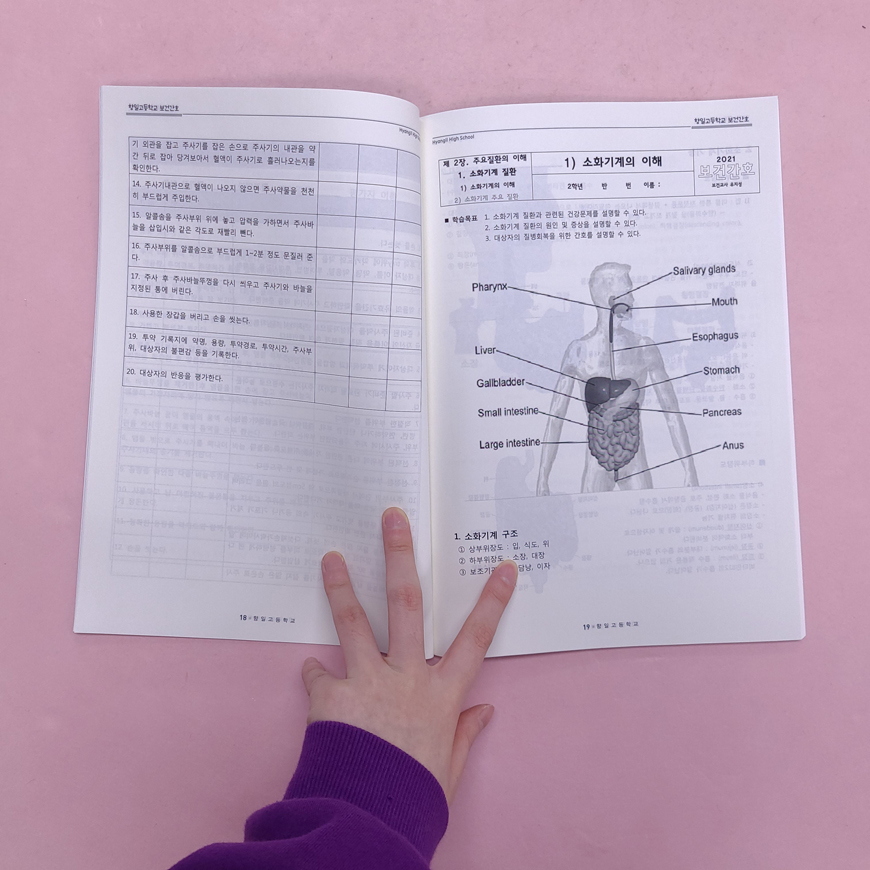 향일고등학교 보건간호
기 외관을 잡고 주사기를 잡은 손으로 주사기의 내관을 약
간 뒤로 잡아 당겨보아서 혈액이 주사기로 흘러나오는지를
확인한다.
14. 주사기내관으로 혈액이 나오지 않으면 주사약물을 천천
히 부드럽게 주입한다.
15. 알콜솜을 주사부위 위에 놓고 압력을 가하면서 주사바
늘을 삽입시와 같은 각도로 재빨리 뺀다.
16. 주사부위를 알콜솜으로 부드럽게 1~2분 정도 문질러 준
다.
17. 주사 후 주사바늘뚜껑을 다시 씌우고 주사기와 바늘을
지정된 통에 버린다.
18. 사용한 장갑을 버리고 손을 씻는다.
19. 투약 기록지에 약명, 용량, 투약경로, 투약시간, 주사부
위, 대상자의 불편감 등을 기록한다.
20. 대상자의 반응을 평가한다.
18 향일고등학교
향일고등학교 보건간호
Hyangil High School
제 2장. 주요질환의 이해
1. 소화기계 질환
1) 소화기계의 이해
2) 소화기계 주요 질환
1) 소화기계의 이해
2학년 반 번 이름 :
2021
보건간호
보건교사
■ 학습목표 1. 소화기계 질환과 관련된 건강문제를 설명할 수 있다.
2. 소화기계 질환의 원인 및 증상을 설명할 수 있다.
3. 대상자의 질병회복을 위한 간호를 설명할 수 있다.
Salivary glands
Pharynx
Mouth
Esophagus
Liver
Stomach
Gallbladder
Small intestine
Pancreas
Large intestine
Anus
1. 소화기계 구조
① 상부위장도 : 입, 식도, 위
② 하부위장도 : 소장, 대장
③ 담낭, 이자
19 향일고등학교